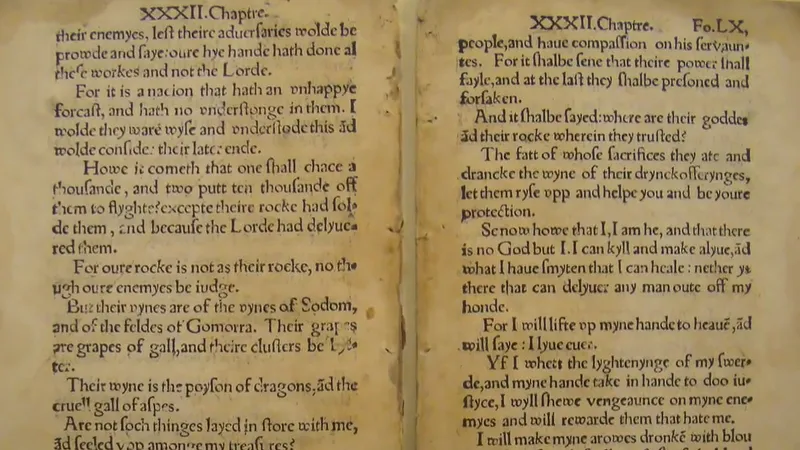 XXXII.Chaptre.
their enemyes, lest theire aduersaries wolde be
prowde and saye:oure hye hande hath done al
these workes and not the Lorde.
For it is a nacion that hath an vnhappye
forcast, and hath no vnderstonge in them. I
wolde they ware wyse and vnderstode this ãd
wolde conside: their later ende.
Howe it cometh that one shall chace a
thousande, and two putt ten thousande off
them to flyghte?excepte theire rocke had sol-
de them, and because the Lorde had delyue-
red them.
For oure rocke is not as their rocke, no tho
ugh oure enemyes be iudge.
But their vynes are of the vynes of Sodom,
and of the feldes of Gomorra. Their grapes
are grapes of gall,and theire clusters be
ter.
Their wyne is the poyson of dragons,ãd the
cruell gall of aspes.
Are not soch thinges layed in store with me,
ãd seeled vpp amonge my treasures?
XXXII.Chaptre. Fo.LX,
people,and haue compassion on his servaun-
tes. For it shalbe sene that theire power shall
fayle,and at the last they shalbe presoned and
forsaken.
And it shalbe sayed:where are their goddes
ãd their rocke wherein they trusted?
The fatt of whose sacrifices they ate and
drancke the wyne of their drynckofferynges,
let them ryse vpp and helpe you and be youre
protection.
Se now howe that I,I am he, and that there
is no God but I.I can kyll and make alyue,ãd
what I haue smyten that I can heale: nether ys
there that can delyuer any man oute off my
honde.
For I will lifte vp myne hande to heauẽ,ãd
will saye: I lyue euer.
Yf I whett the lyghtenynge of my swer-
de,and myne hande take in hande to doo iu-
styce,I wyll shewe vengeaunce on myne ene-
myes and will rewarde them that hate me.
I will make myne arowes dronkẽ with blou